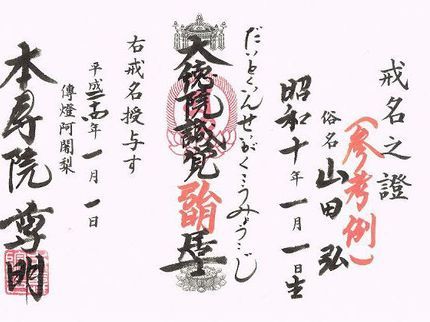 戒名之證
(参考例)
俗名 山田弘
昭和十年一月一日生
だいとくいんせいがくこうみょうこじ
大徳院誠覚弘明居士
右戒名授与す
平成二十四年一月一日
傳燈阿闍梨
本寿院 尊明